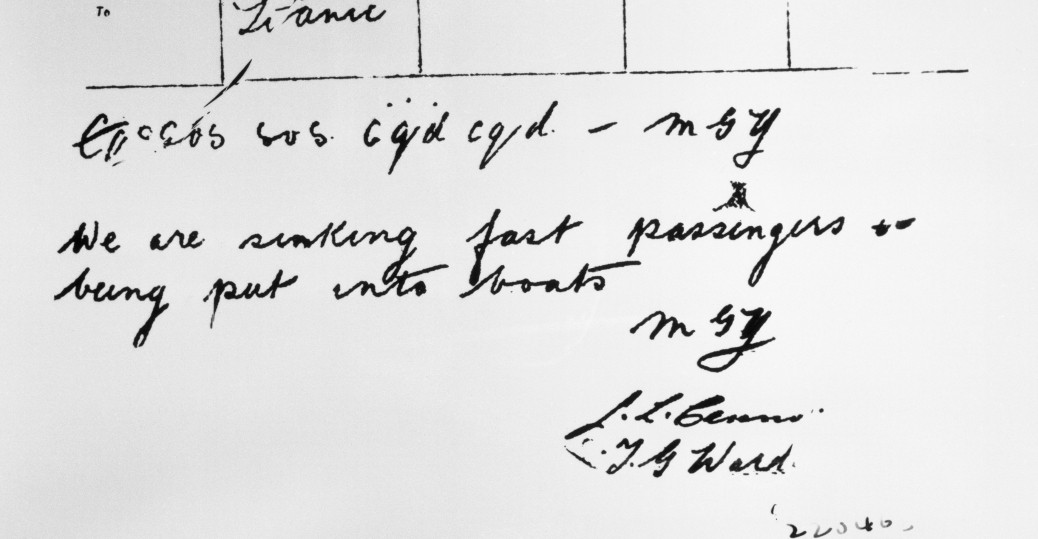 To
Titanic
sos sos cqd cqd. - MGY
We are sinking fast passengers
being put into boats
MGY
T. G Ward.